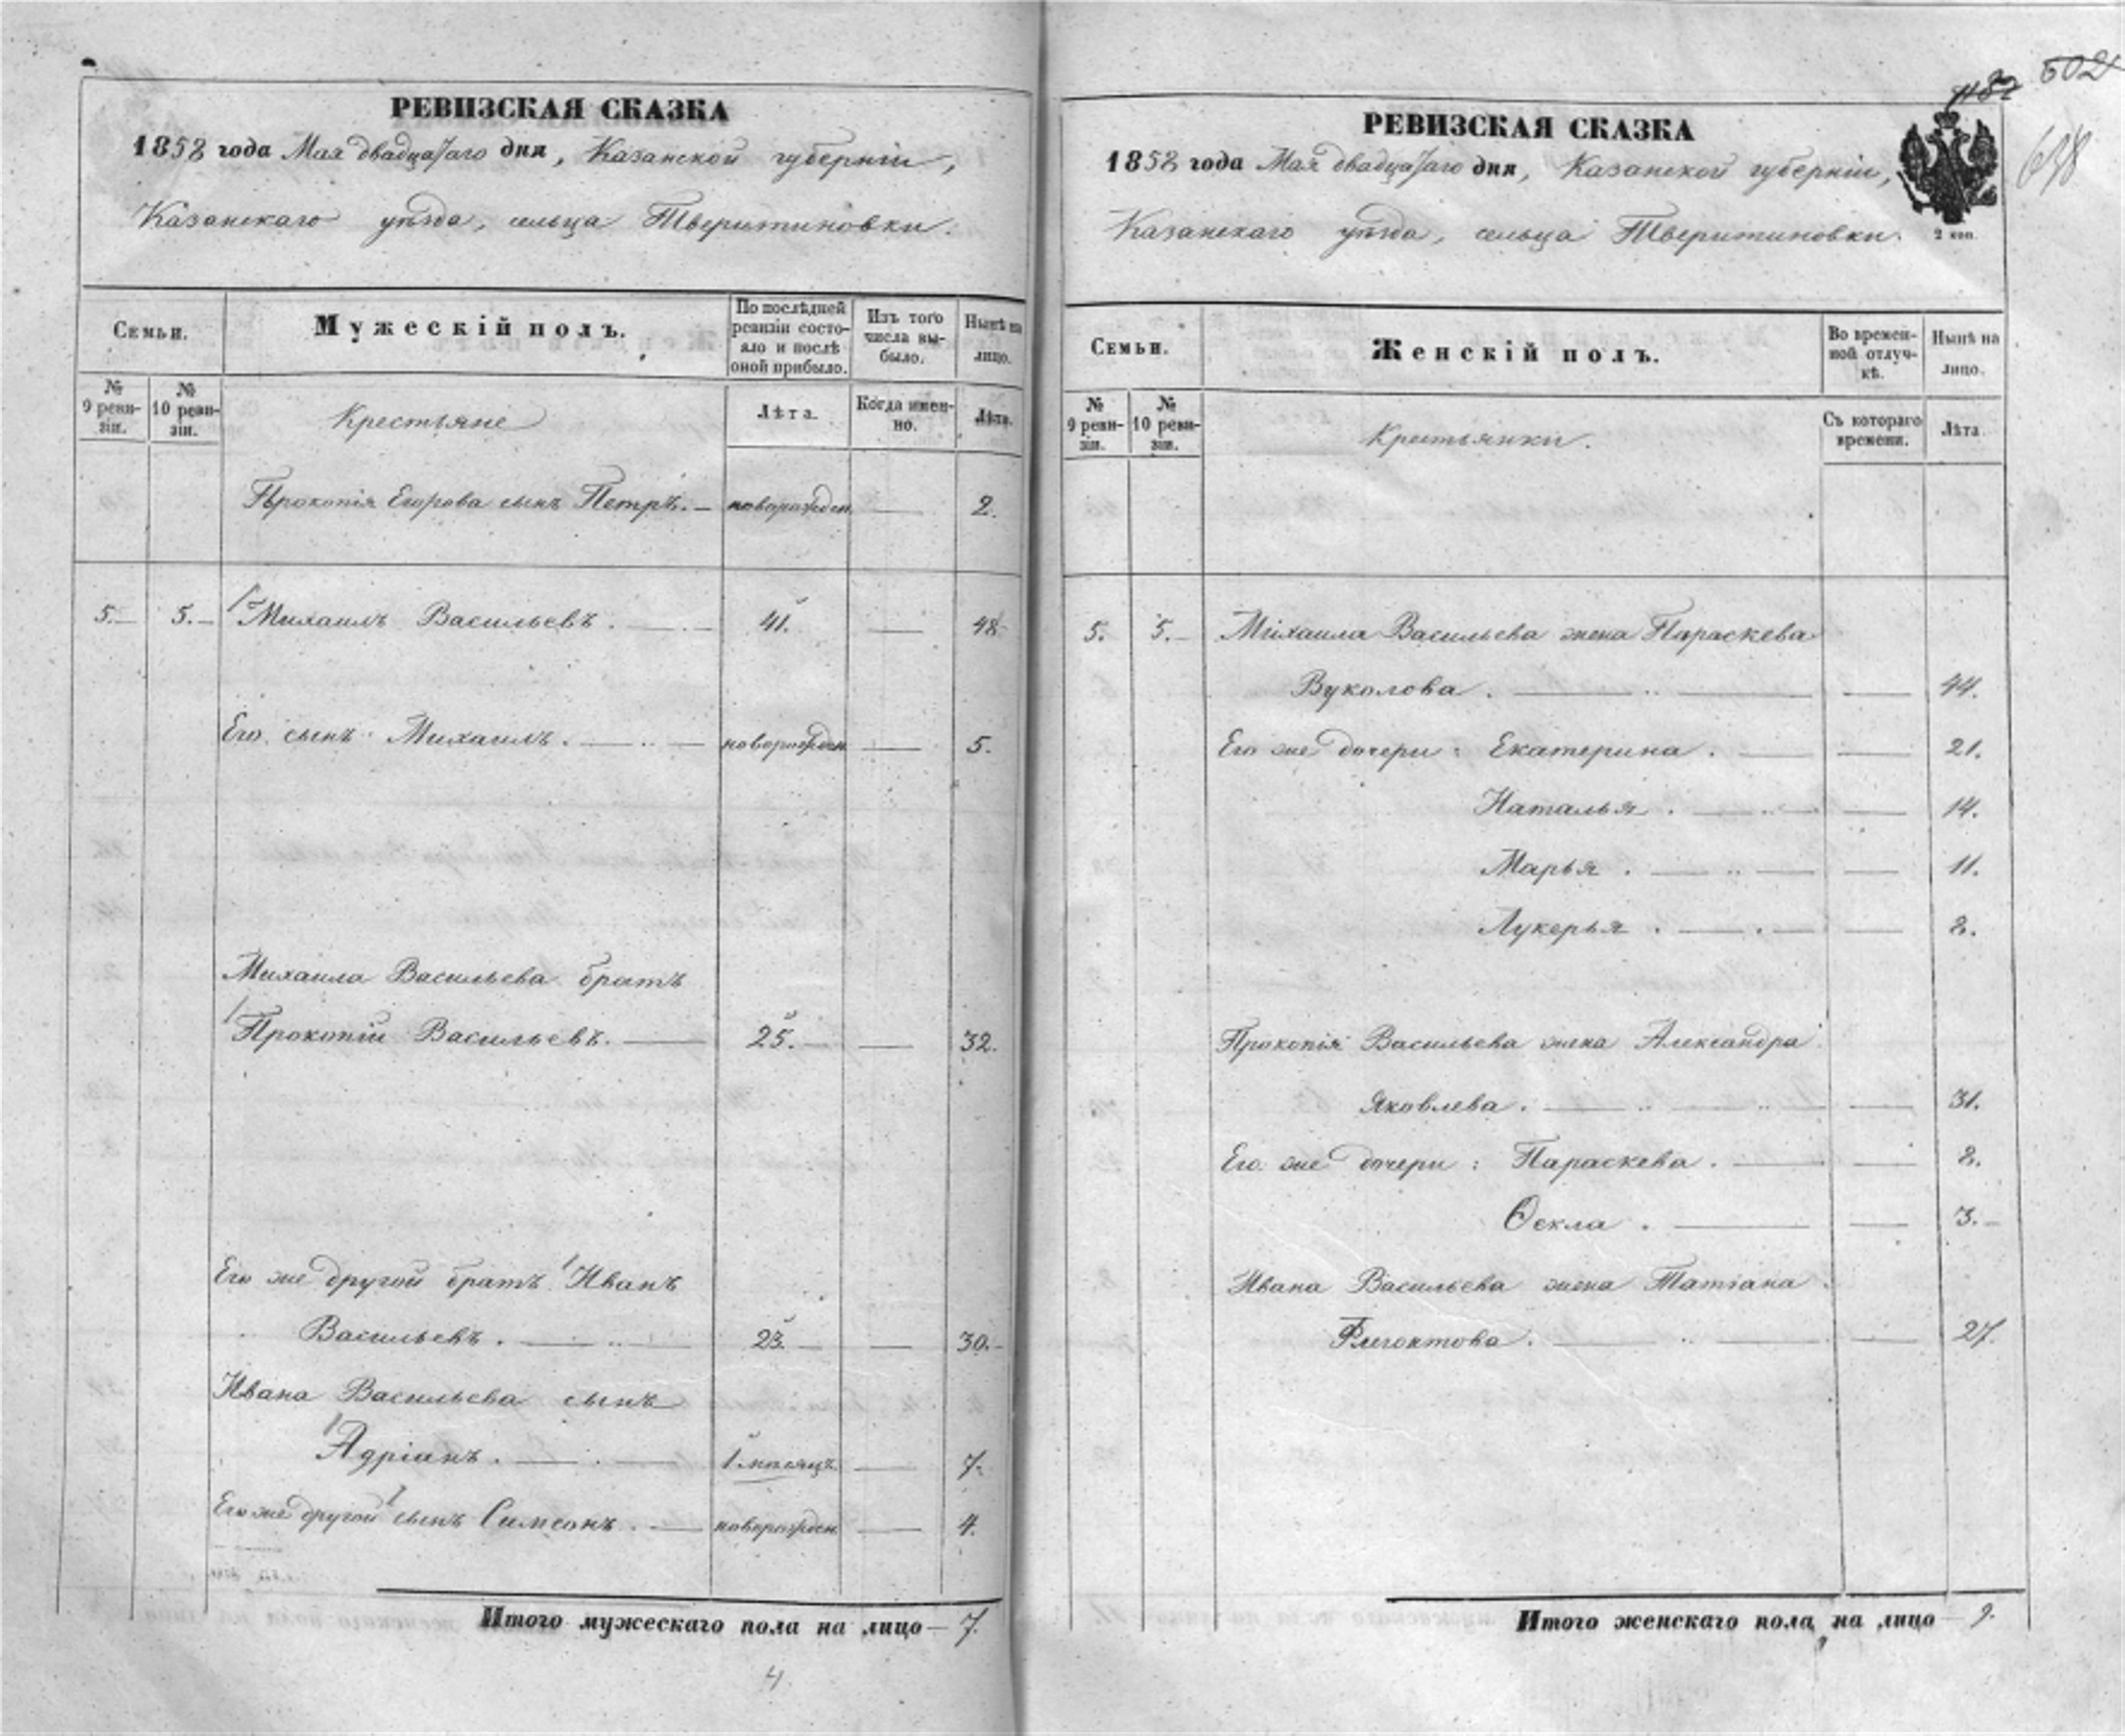 РЕВИЗСКАЯ СКАЗКА
1858 года Мая двадцатаго дня, Казанской губерніи,
Казанскаго уѣзда, сельца Тверитиновки.
Семьи.
Мужескій полъ.
По послѣдней ревизіи состояло и послѣ оной прибыло.
Изъ того числа выбыло.
Нынѣ на лицо.
№ 9 ревизіи.
№ 10 ревизіи.
Крестьяне
Лѣта.
Когда именно.
Лѣта.
Прокопія Егорова сынъ Петръ. новорожден. 2.
5. 5. Михаилъ Васильевъ. 41. 48.
Его сынъ Михаилъ. новорожден. 5.
Михаила Васильева братъ
Прокопій Васильевъ. 25. 32.
Его же другой братъ Иванъ
Васильевъ. 23. 30.
Ивана Васильева сынъ
Адріанъ. 1 мѣсяцъ. 7.
Его же другой сынъ Симеонъ. новорожден. 4.
Итого мужескаго пола на лицо — 7.
4
РЕВИЗСКАЯ СКАЗКА
1858 года Мая двадцатаго дня, Казанской губерніи,
Казанскаго уѣзда, сельца Тверитиновки.
2 коп.
502
638
Семьи.
Женскій полъ.
Во временной отлучкѣ.
Нынѣ на лицо.
№ 9 ревизіи.
№ 10 ревизіи.
Крестьянки.
Съ котораго времени.
Лѣта
5. 5. Михаила Васильева жена Параскева
Вуколова. 44.
Его же дочери: Екатерина. 21.
Наталья. 14.
Марья. 11.
Лукерья. 8.
Прокопія Васильева жена Александра
Яковлева. 31.
Его же дочери: Параскева. 8.
Ѳекла. 3.
Ивана Васильева жена Татіана
27.
Итого женскаго пола на лицо — 9.